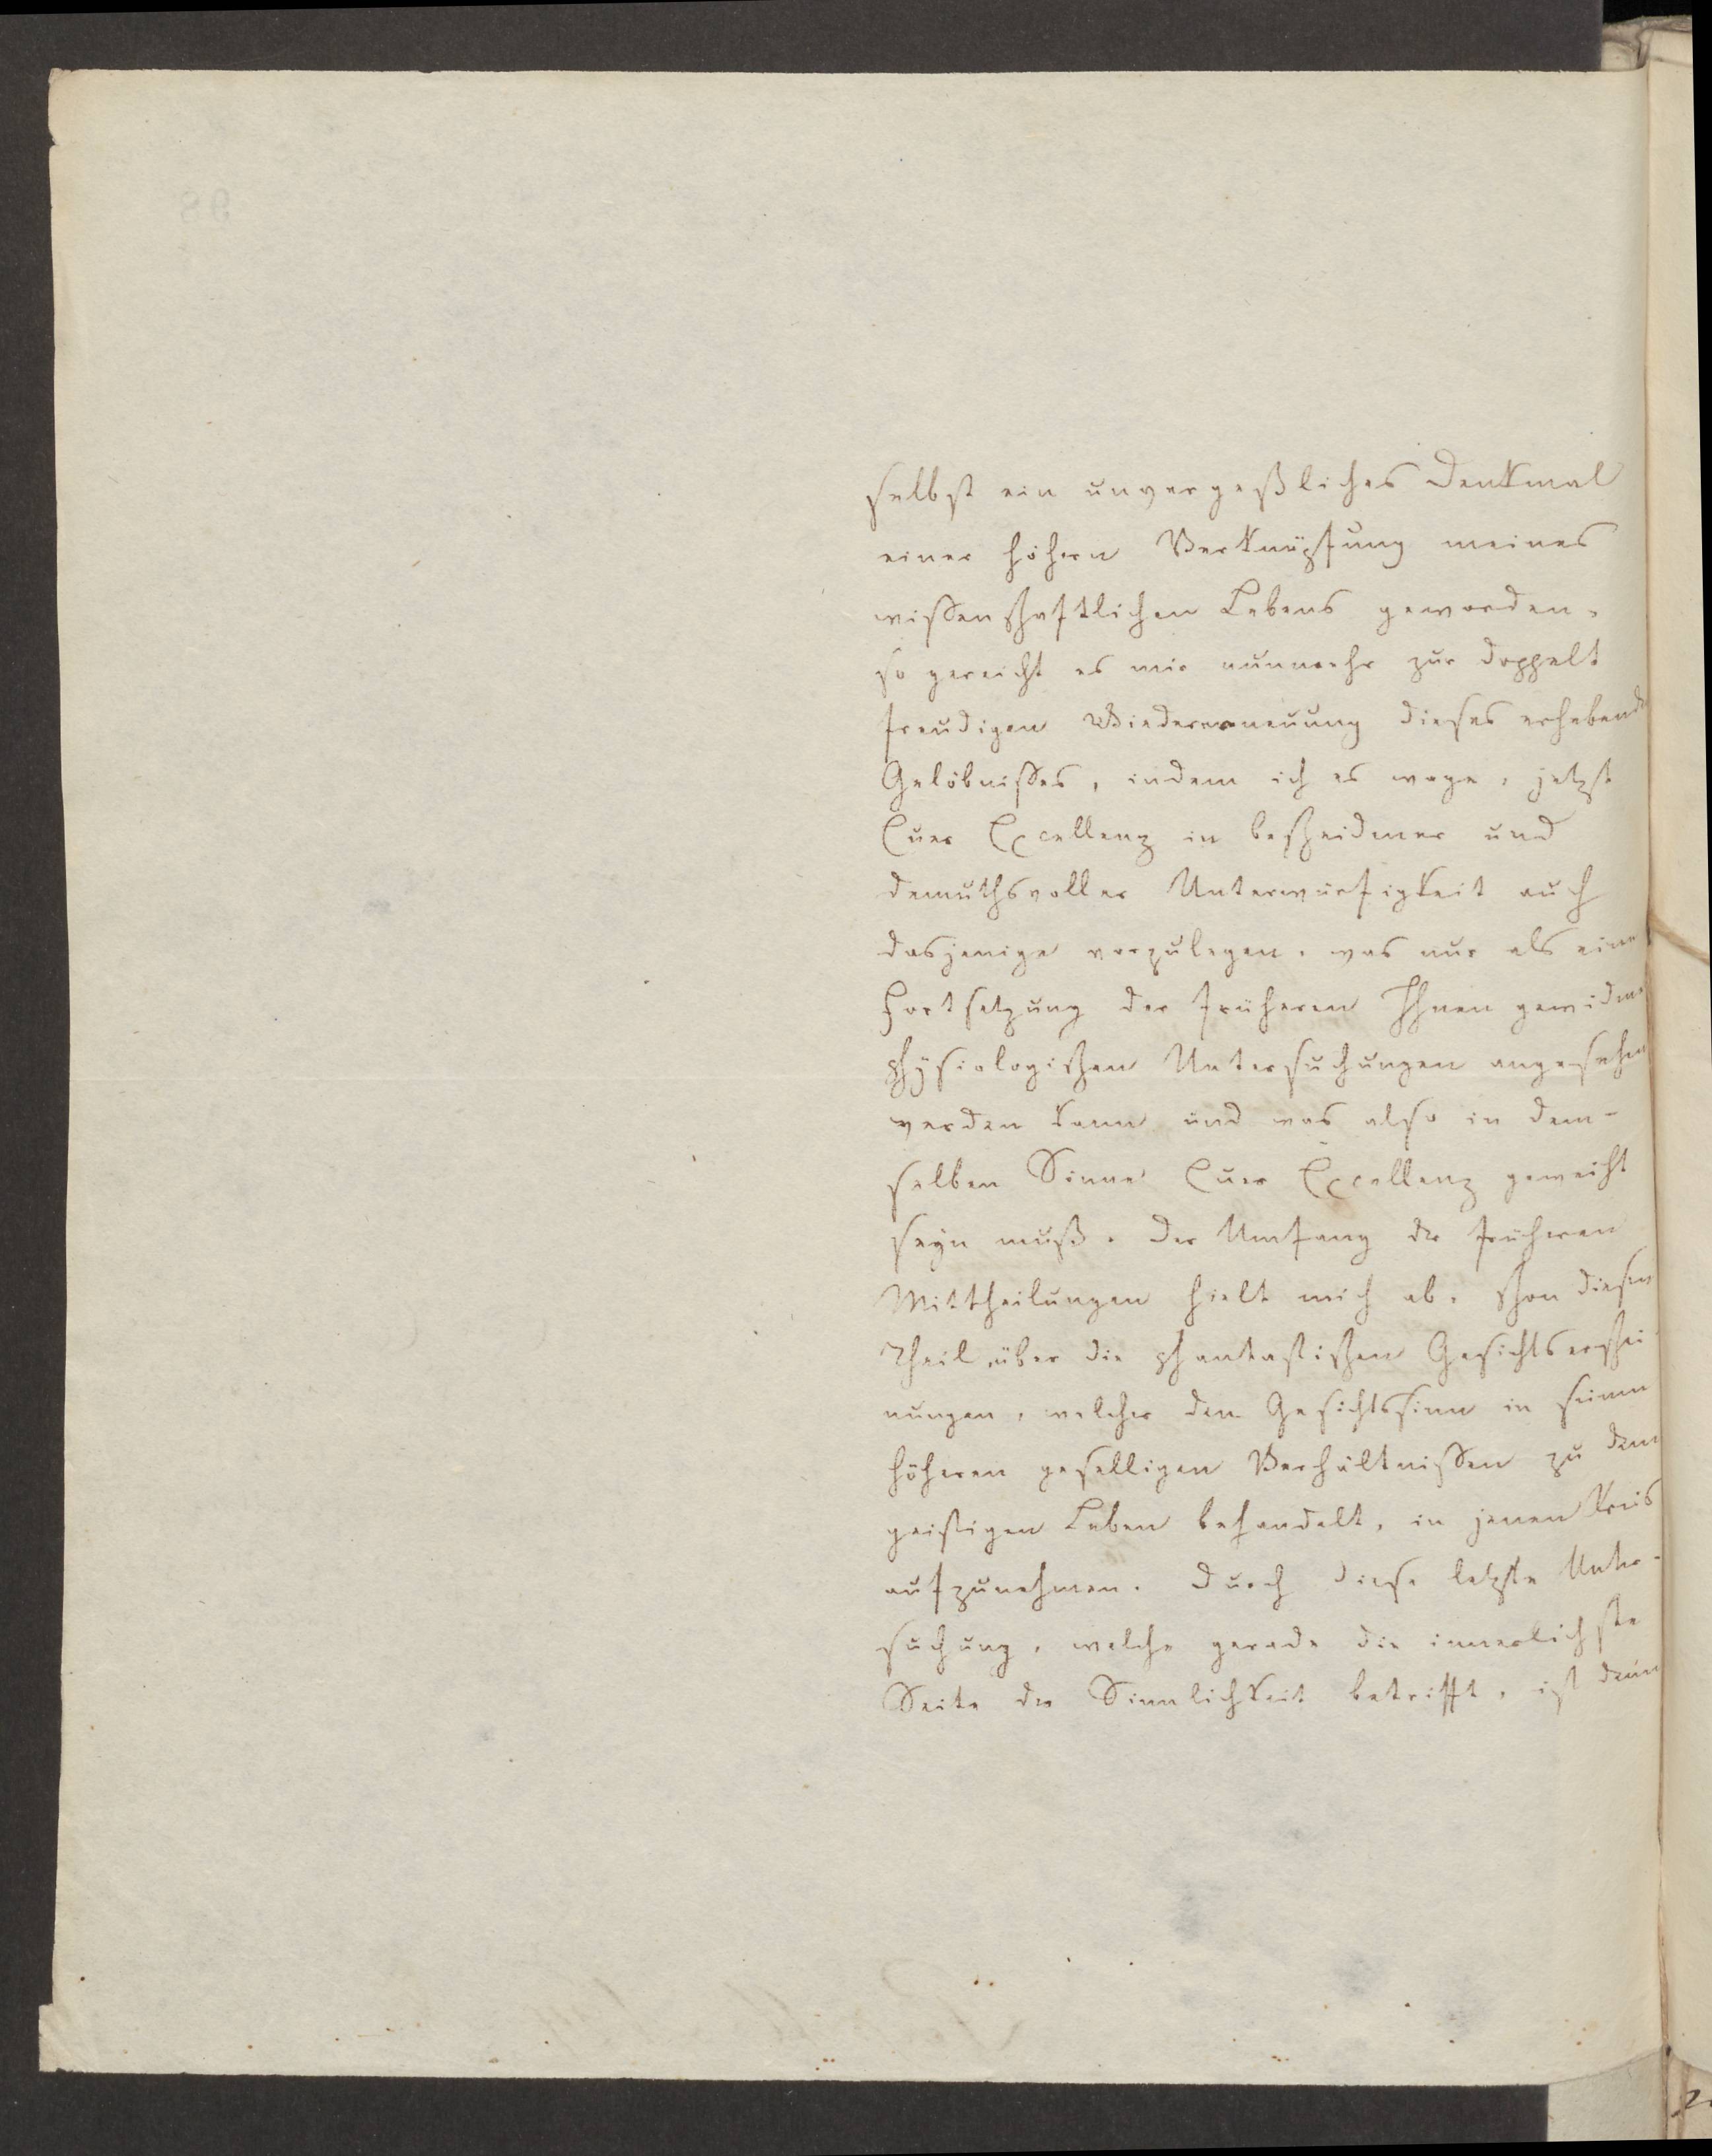 selbst ein unvergeßliches Denkmal
einer höhern Verknüpfung meines
wissenschaftlichen Lebens geworden,
so gereicht es mir nunmehr zur doppelt
freudigen Wiedererneuung dieses erhebenden
Gelöbnisses, indem ich es wage, jetzt
Euer Excellenz in bescheidener und
demuthsvoller Unterwürfigkeit auch
dasjenige vorzulegen, was nur als eine
Fortsetzung der früheren Ihnen gewidme
physiologischen Untersuchungen angesehen
werden kann und was also in dem-
selben Sinne Euer Excellenz geweiht
seyn muß. Der Umfang der früheren
Mittheilungen hielt mich ab, schon diesen
Theil über die phantastischen Gesichtserschei
nungen, welcher den Gesichtssinn in seinen
höheren geselligen Verhältnissen zu dem
geistigen Leben behandelt, in jenen Kreis
aufzunehmen. Durch diese letzte Unter-
suchung, welche gerade die innerlichste
Seite der Sinnlichkeit betrifft, ist denn